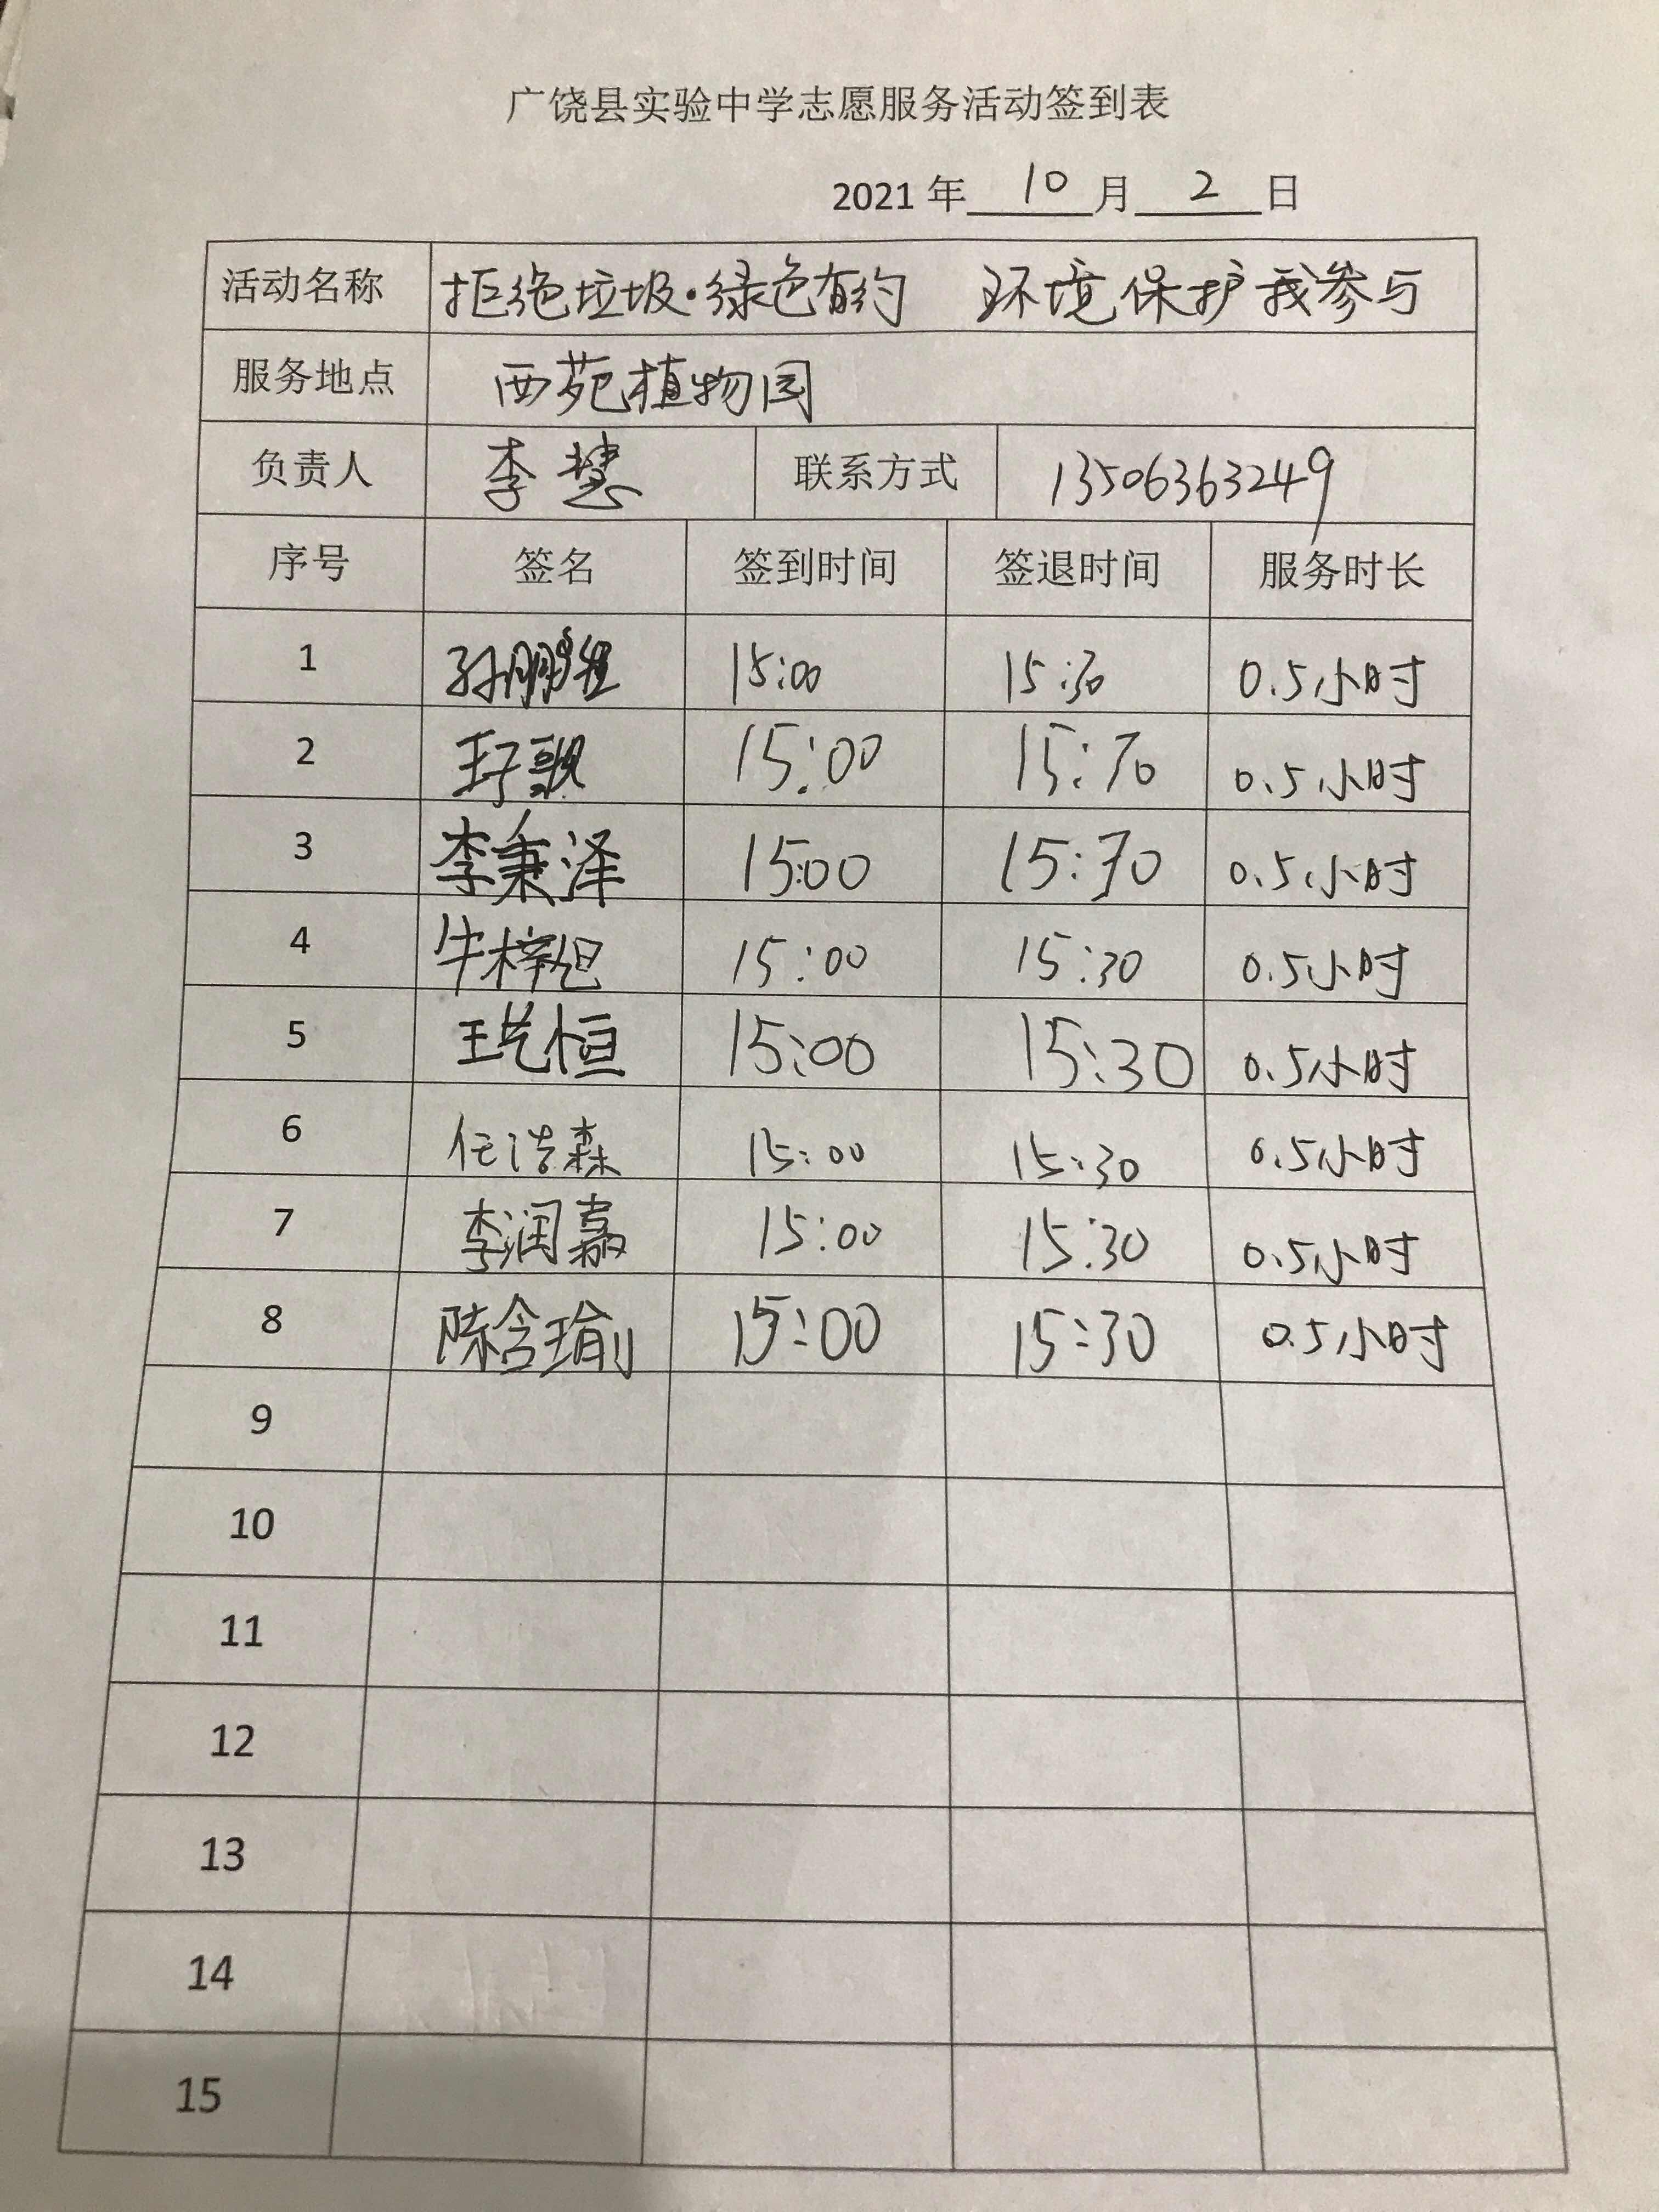 广饶县实验中学志愿服务活动签到表
2021 年 10 月 2 日
活动名称 拒绝垃圾·绿色有约 环境保护我参与
服务地点 西苑植物园
负责人 李慧 联系方式 13506363249
序号 签名 签到时间 签退时间 服务时长
1 孙鹏 15:00 15:30 0.5小时
2 王子歌 15:00 15:30 0.5小时
3 李秉泽 15:00 15:30 0.5小时
4 牛梓旭 15:00 15:30 0.5小时
5 王艺恒 15:00 15:30 0.5小时
6 任浩森 15:00 15:30 0.5小时
7 李润嘉 15:00 15:30 0.5小时
8 陈含瑜 15:00 15:30 0.5小时
9
10
11
12
13
14
15